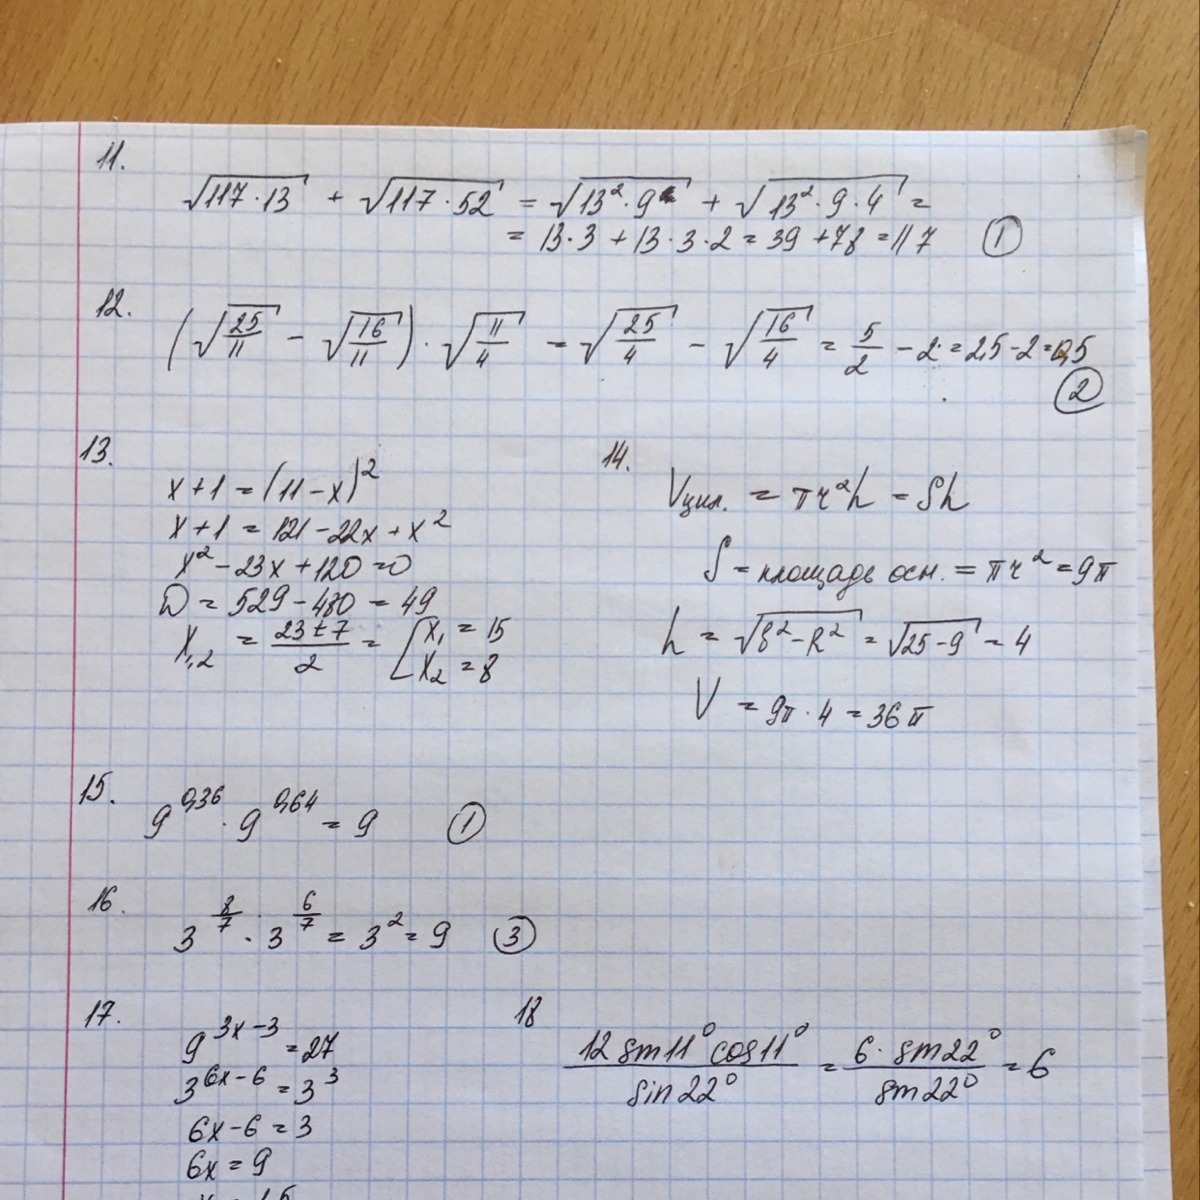 11.
√117·13 + √117·52 = √13²·9 + √13²·9·4 =
= 13·3 + 13·3·2 = 39 + 78 = 117 ①
12.
(√25/11 − √16/11) · √11/4 = √25/4 − √16/4 = 5/2 − 2 = 2,5 − 2 = 0,5
②
13.
x + 1 = (11 − x)²
x + 1 = 121 − 22x + x²
x² − 23x + 120 = 0
D = 529 − 480 = 49
x₁,₂ = 23 ± 7 / 2 = [x₁ = 15
x₂ = 8
14.
Vцил. = πr²h = Sh
S = площадь осн. = πr² = 9π
h = √8² − R² = √25 − 9 = 4
V = 9π · 4 = 36π
15.
9^0,36 · 9^0,64 = 9 ①
16.
3^8/7 · 3^6/7 = 3² = 9 ③
17.
9^3x−3 = 27
3^6x−6 = 3³
6x − 6 = 3
6x = 9
18
12 sin11° cos11° / sin22° = 6 · sin22° / sin22° = 6